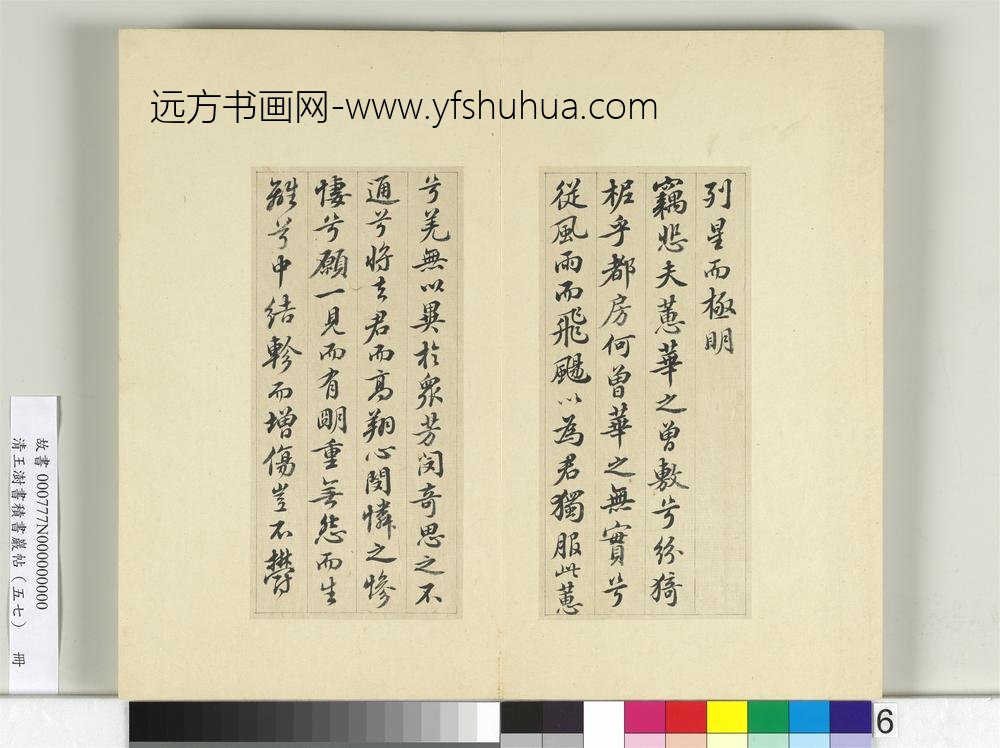 远方书画网-www.yfshuhua.com
列星而極明
竊悲夫蕙華之曾敷兮紛猗
柅乎都房何曾華之無實兮
從風雨而飛颺以為君獨服此蕙
兮羌無以異於衆芳閔奇思之不
通兮將去君而高翔心閔憐之慘
悽兮願一見而有明重無怨而生
離兮中結軫而增傷豈不鬱
故書 000777N000000000
清王澍書積書巖帖(五七) 冊
6